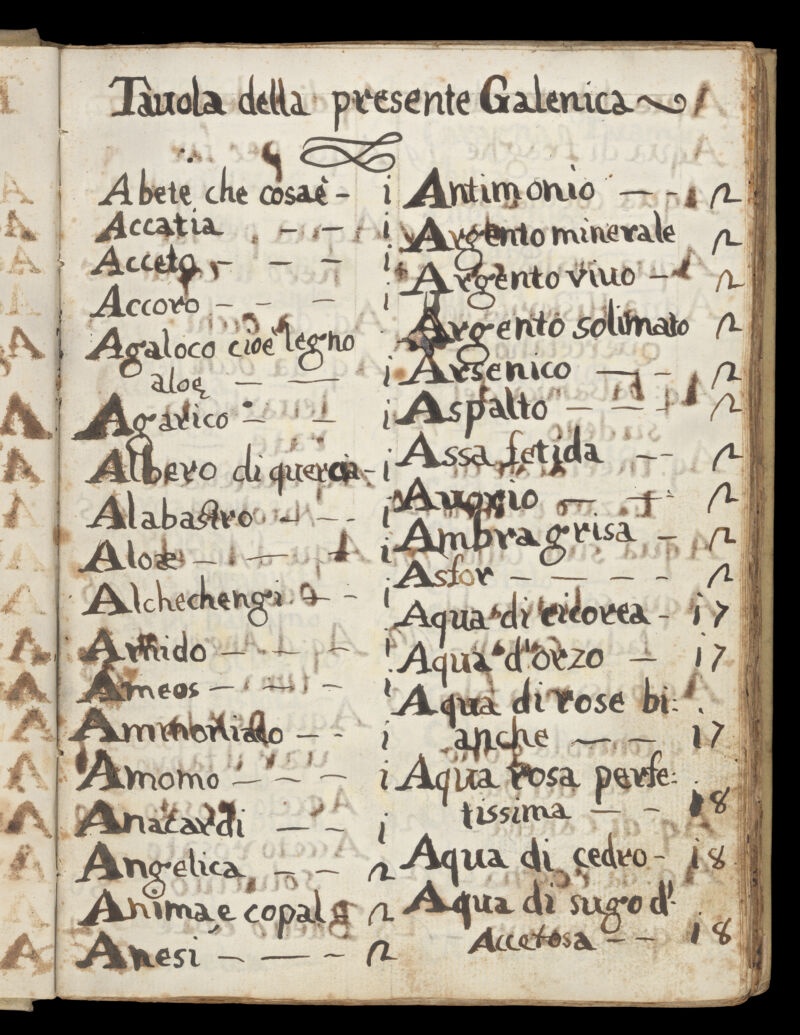 Tauola della presente Galenica
Abete che cosaè - i
Accatia - - i
Acceto - - - i
Accoro - - - i
Agaloco cioè legno
aloę - - i
Agarico - - i
Albero di quercia - i
Alabastro - - - i
Aloæ - - - i
Alchechengi - - i
Amido - - - i
Ameos - - - i
Ammoniaco - - i
Amomo - - - i
Anacardi - - i
Angelica - - 2
Anima, e copal 2
Anesi - - - 2
Antimonio - - 2
Argento minerale 2
Argento viuo - 2
Argento solimato 2
Arsenico - - 2
Aspalto - - - 2
Assa fetida - - 2
Auorio - - 2
Ambra grisa - 2
Asfor - - - - 2
Aqua di cicorea - 17
Aqua d'orzo - 17
Aqua di rose bi:
anche - - 17
Aqua rosa perfe:
tissima - - 18
Aqua di cedro - 18
Aqua di sugo d'
Accetosa - - 18